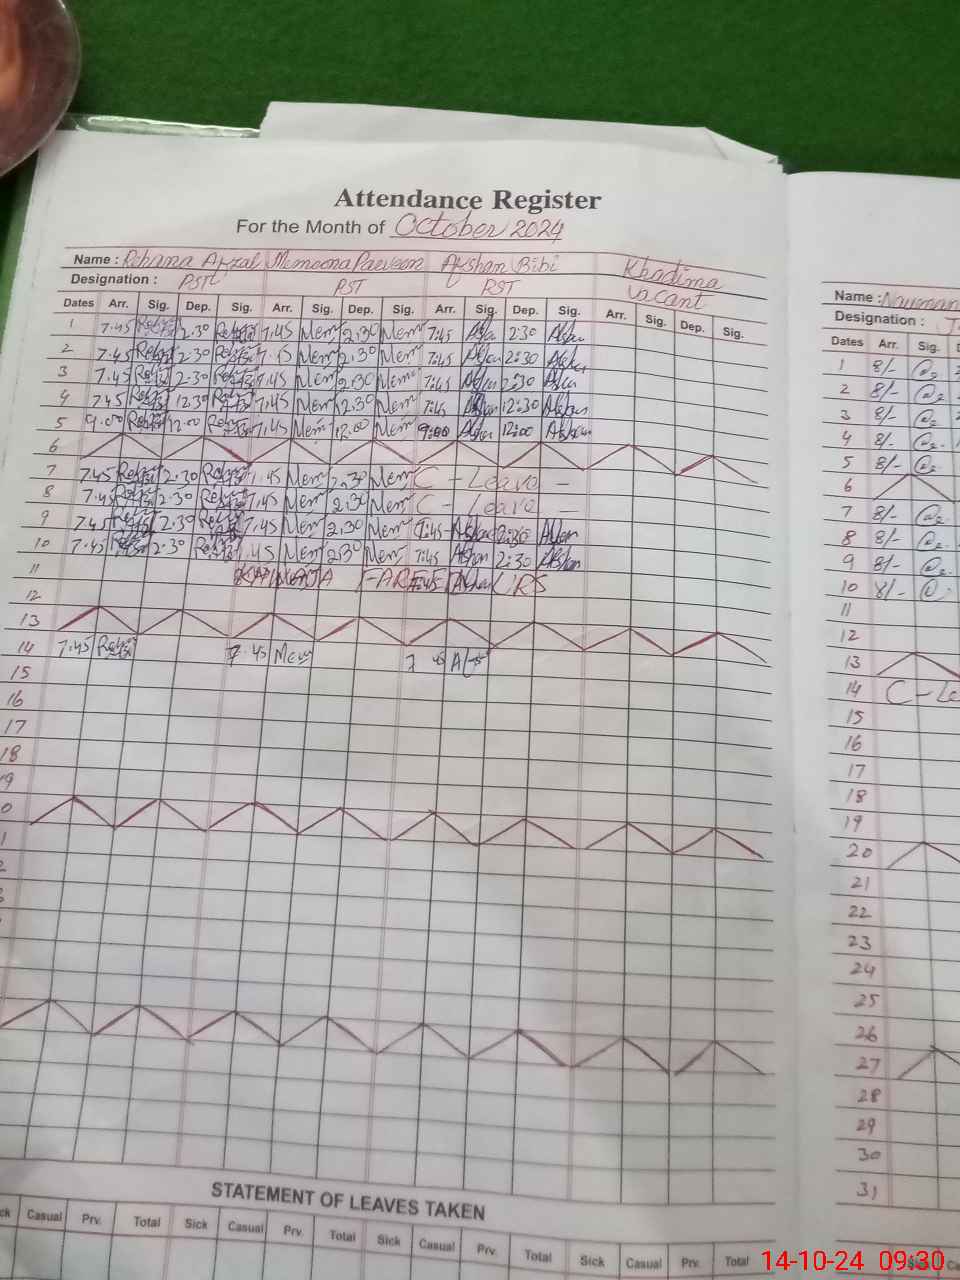 Attendance Register
For the Month of October 2024
Name : Rehana Afzal Memoona Parveen Afshan Bibi Khadima
Designation : PST PST PST Vacant
Dates Arr. Sig. Dep. Sig. Arr. Sig. Dep. Sig. Arr. Sig. Dep. Sig. Arr. Sig. Dep. Sig.
1 7.45 2.30 7.45 Mem 2.30 Mem 7:45 2:30
2 7.45 2.30 Mem 2.30 Mem 7:45 2:30
3 7.45 2.30 7.45 Mem 2.30 Mem 7:45 2:30
4 7.45 12.30 7.45 Mem 12.30 Mem 7:45 12:30
5 9.00 12.00 7.45 Mem 12.00 Mem 9:00 12:00
6
7 7.45 2.30 7.45 Mem 2.30 Mem C - Leave -
8 7.45 2.30 7.45 Mem 2.30 Mem C - Leave -
9 7.45 2.30 7.45 Mem 2.30 Mem 7:45 2:30
10 7.45 2.30 7.45 Mem 2.30 Mem 7:45 2:30
11 URS
12
13
14 7.45 7.45 Mem
15
16
17
18
9
0
1
2
STATEMENT OF LEAVES TAKEN
ck Casual Prv. Total Sick Casual Prv. Total Sick Casual Prv. Total Sick Casual Prv. Total
Name : Nauman
Designation :
Dates Arr. Sig.
1 8/-
2 8/-
3 8/-
4 8/-
5 8/-
6
7 8/-
8 8/-
9 8/-
10 8/-
11
12
13
14 C - Le
15
16
17
18
19
20
21
22
23
24
25
26
27
28
29
30
31
14-10-24 09:30